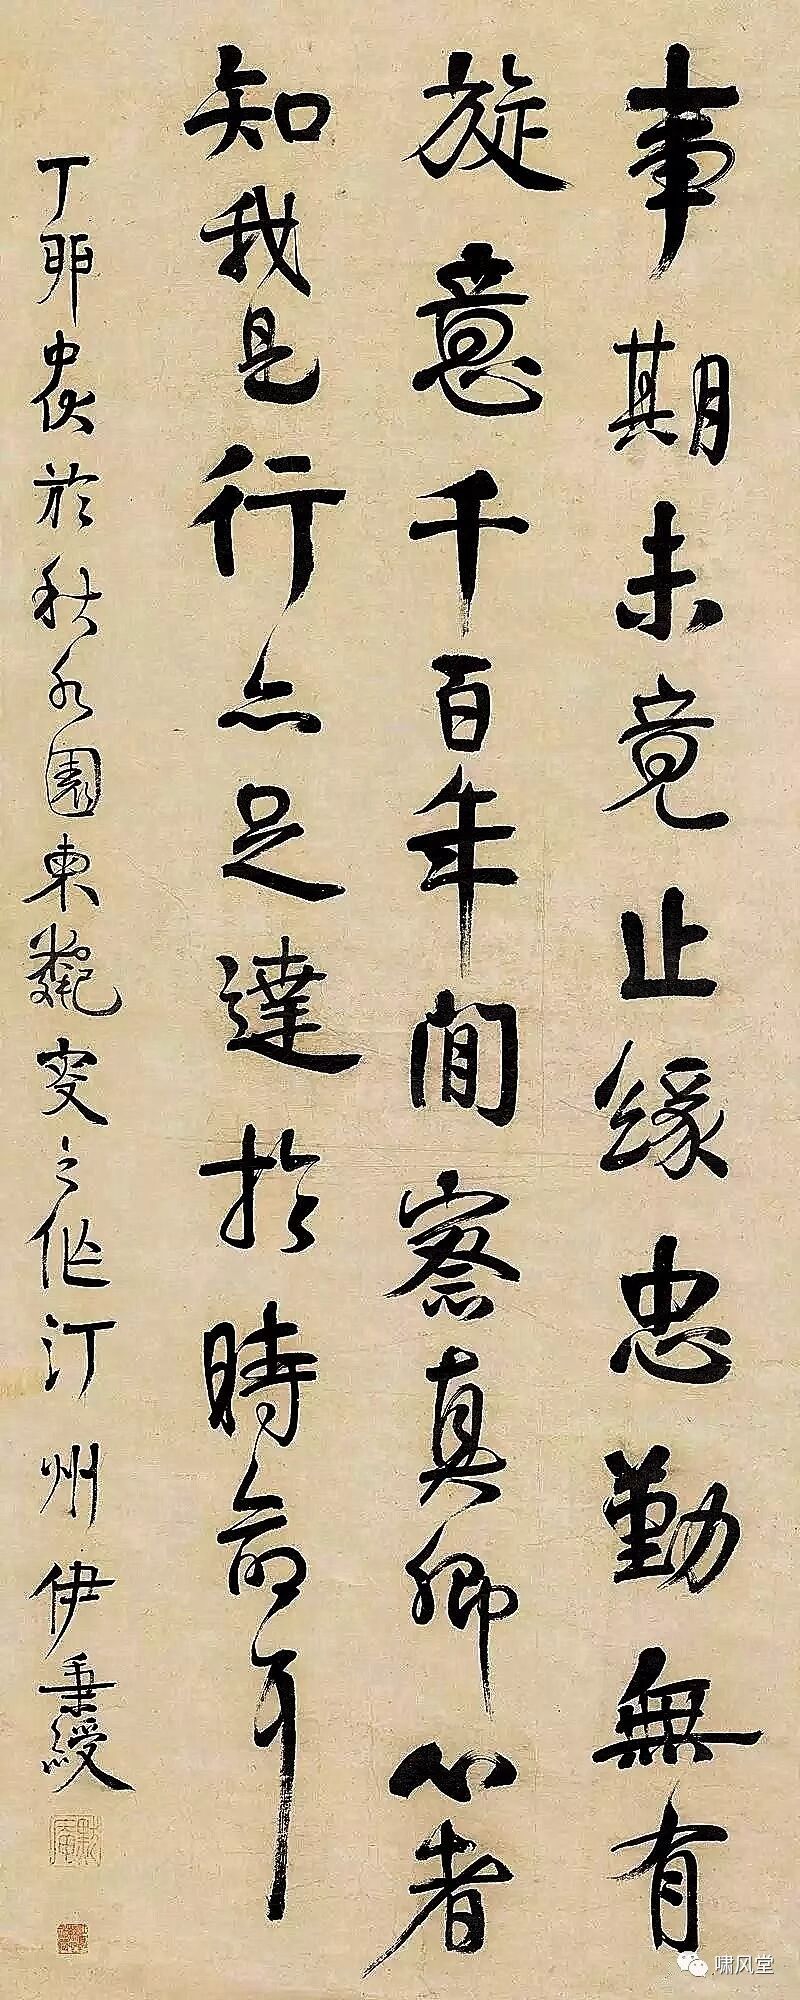 事期未竟止緣忠勤無有
旋意千百年間察真卿心者
知我是行亦足達於時命耳
丁卯中伏於秋水園東之作汀州伊秉綬
默庵
啸风堂